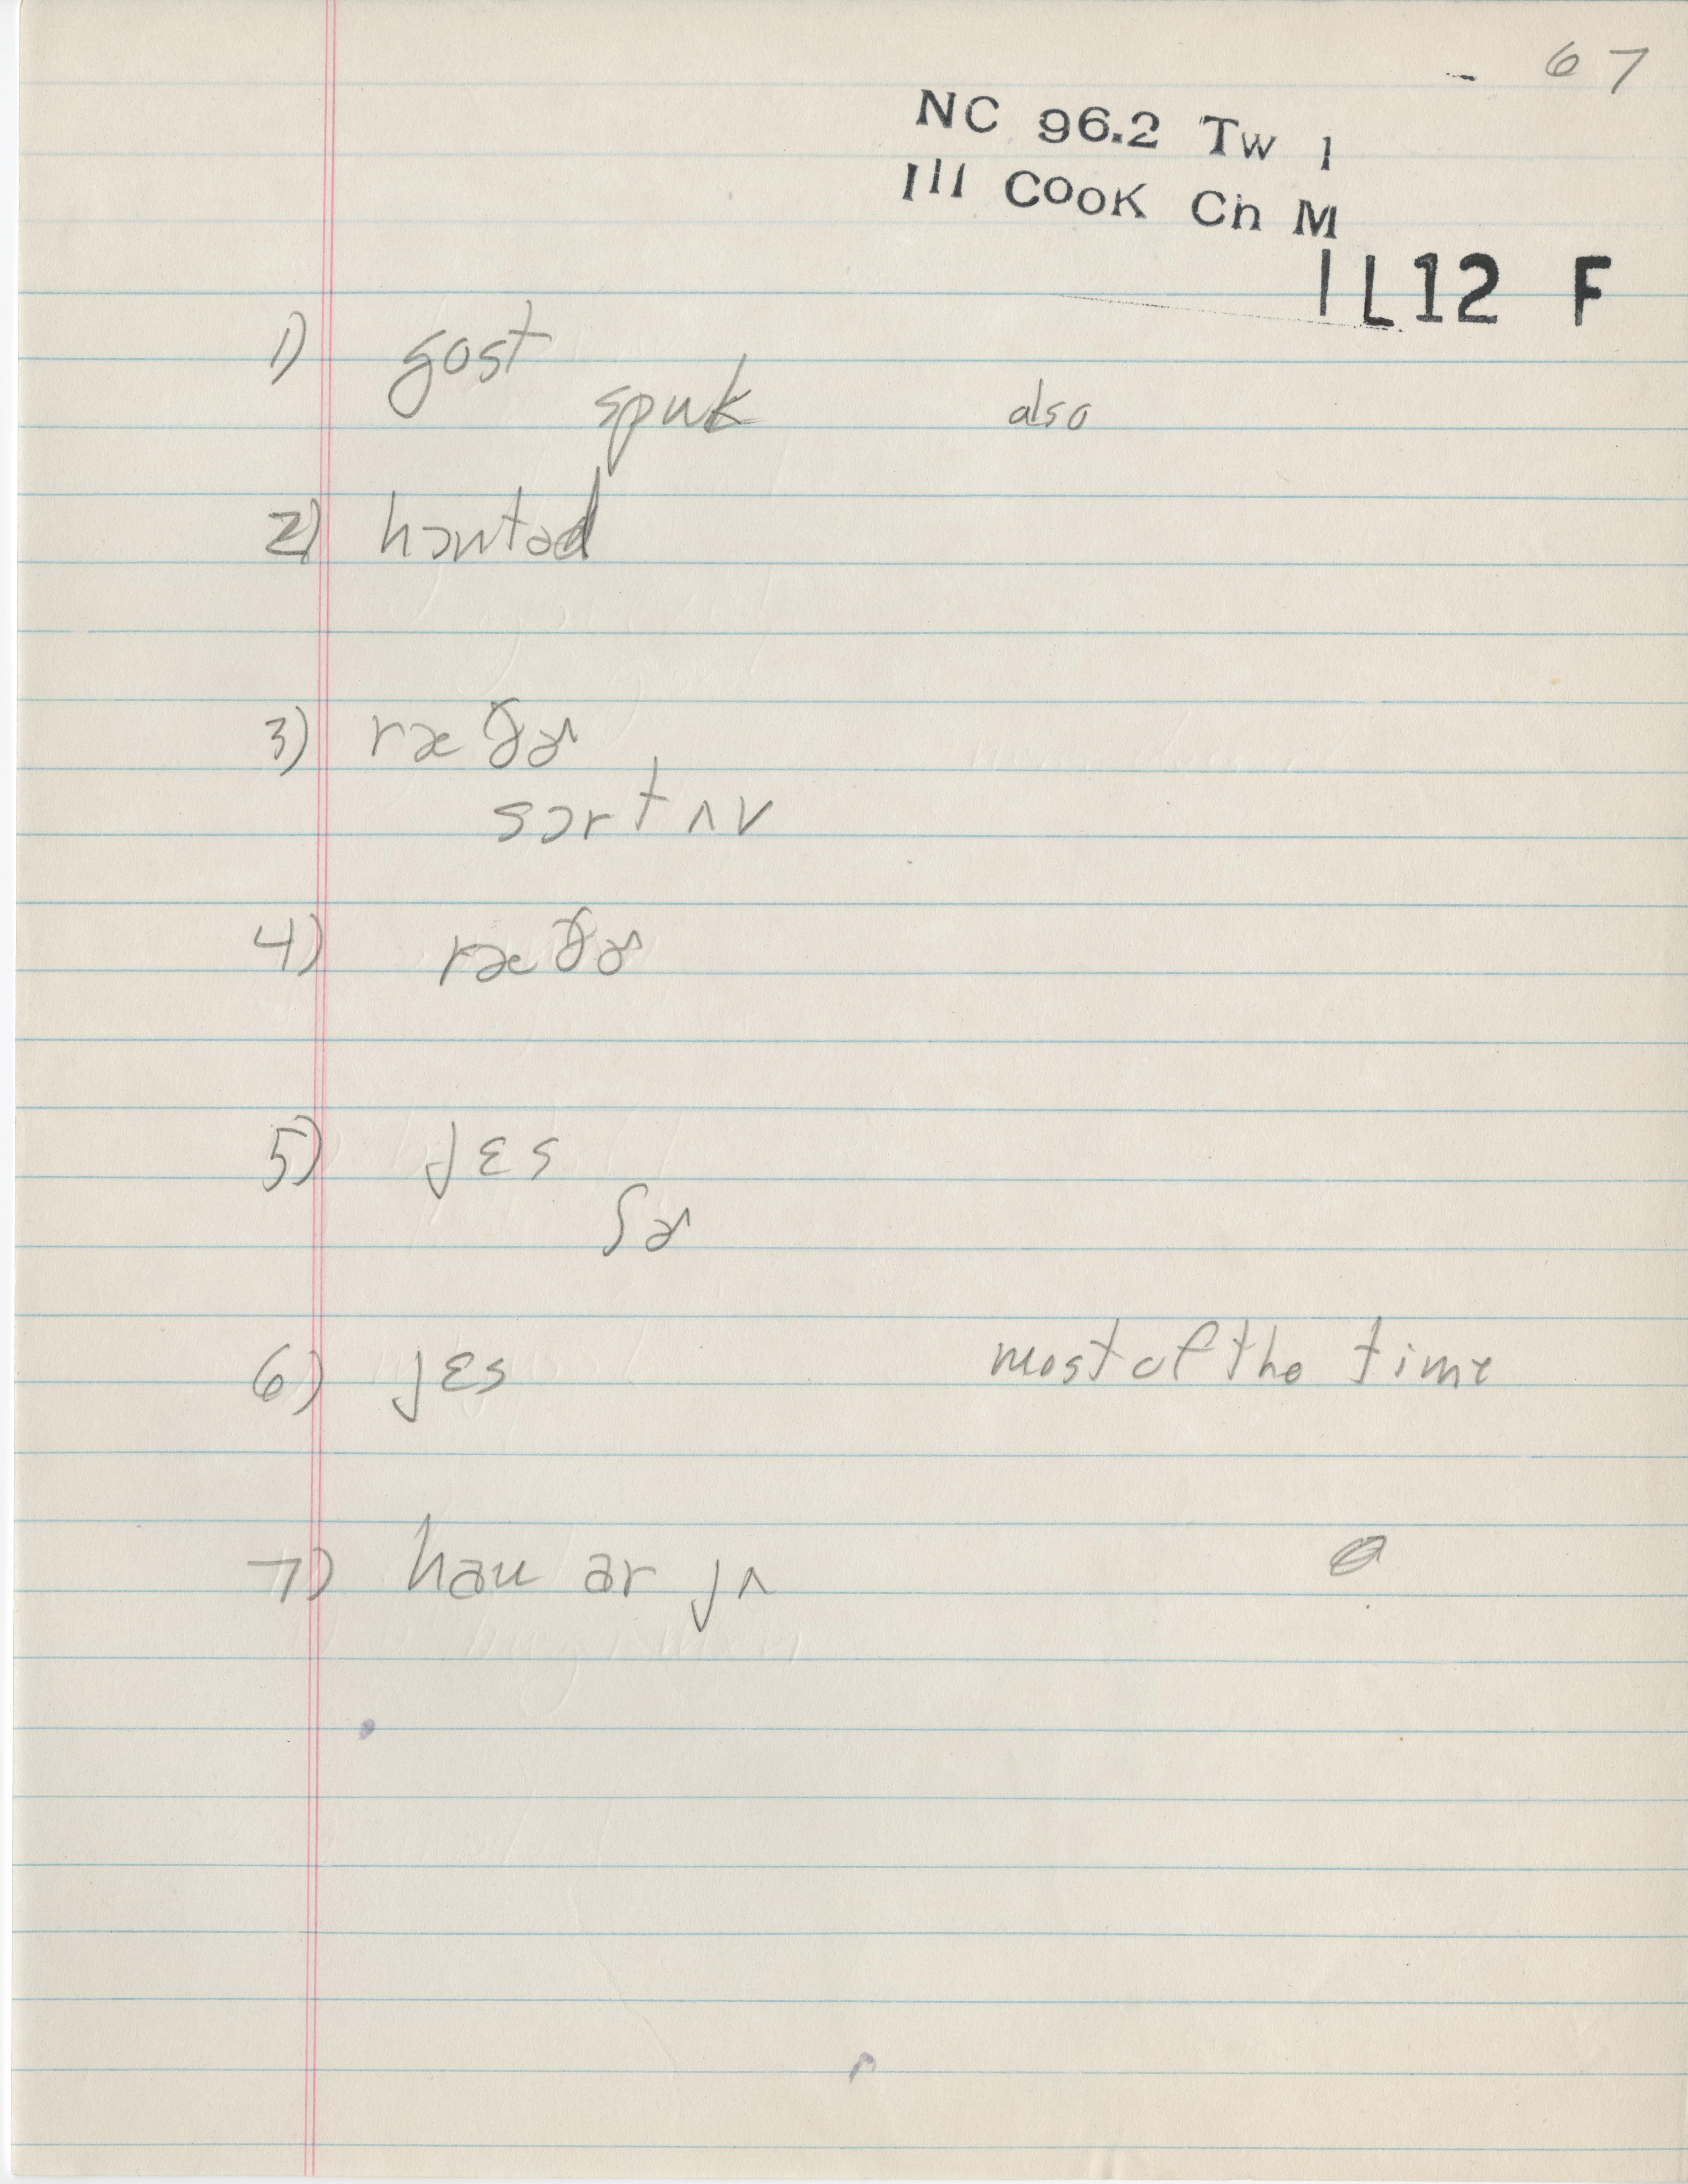 67
NC 96.2 Tw 1
Ill COOK Ch M
IL12 F
1) gost
spuk also
2) hɔntəd
3) ræðɚ
sɔrtʌv
4) ræðɚ
5) jɛs
ʃɚ
6) jɛs most of the time
7) hau ar jʌ